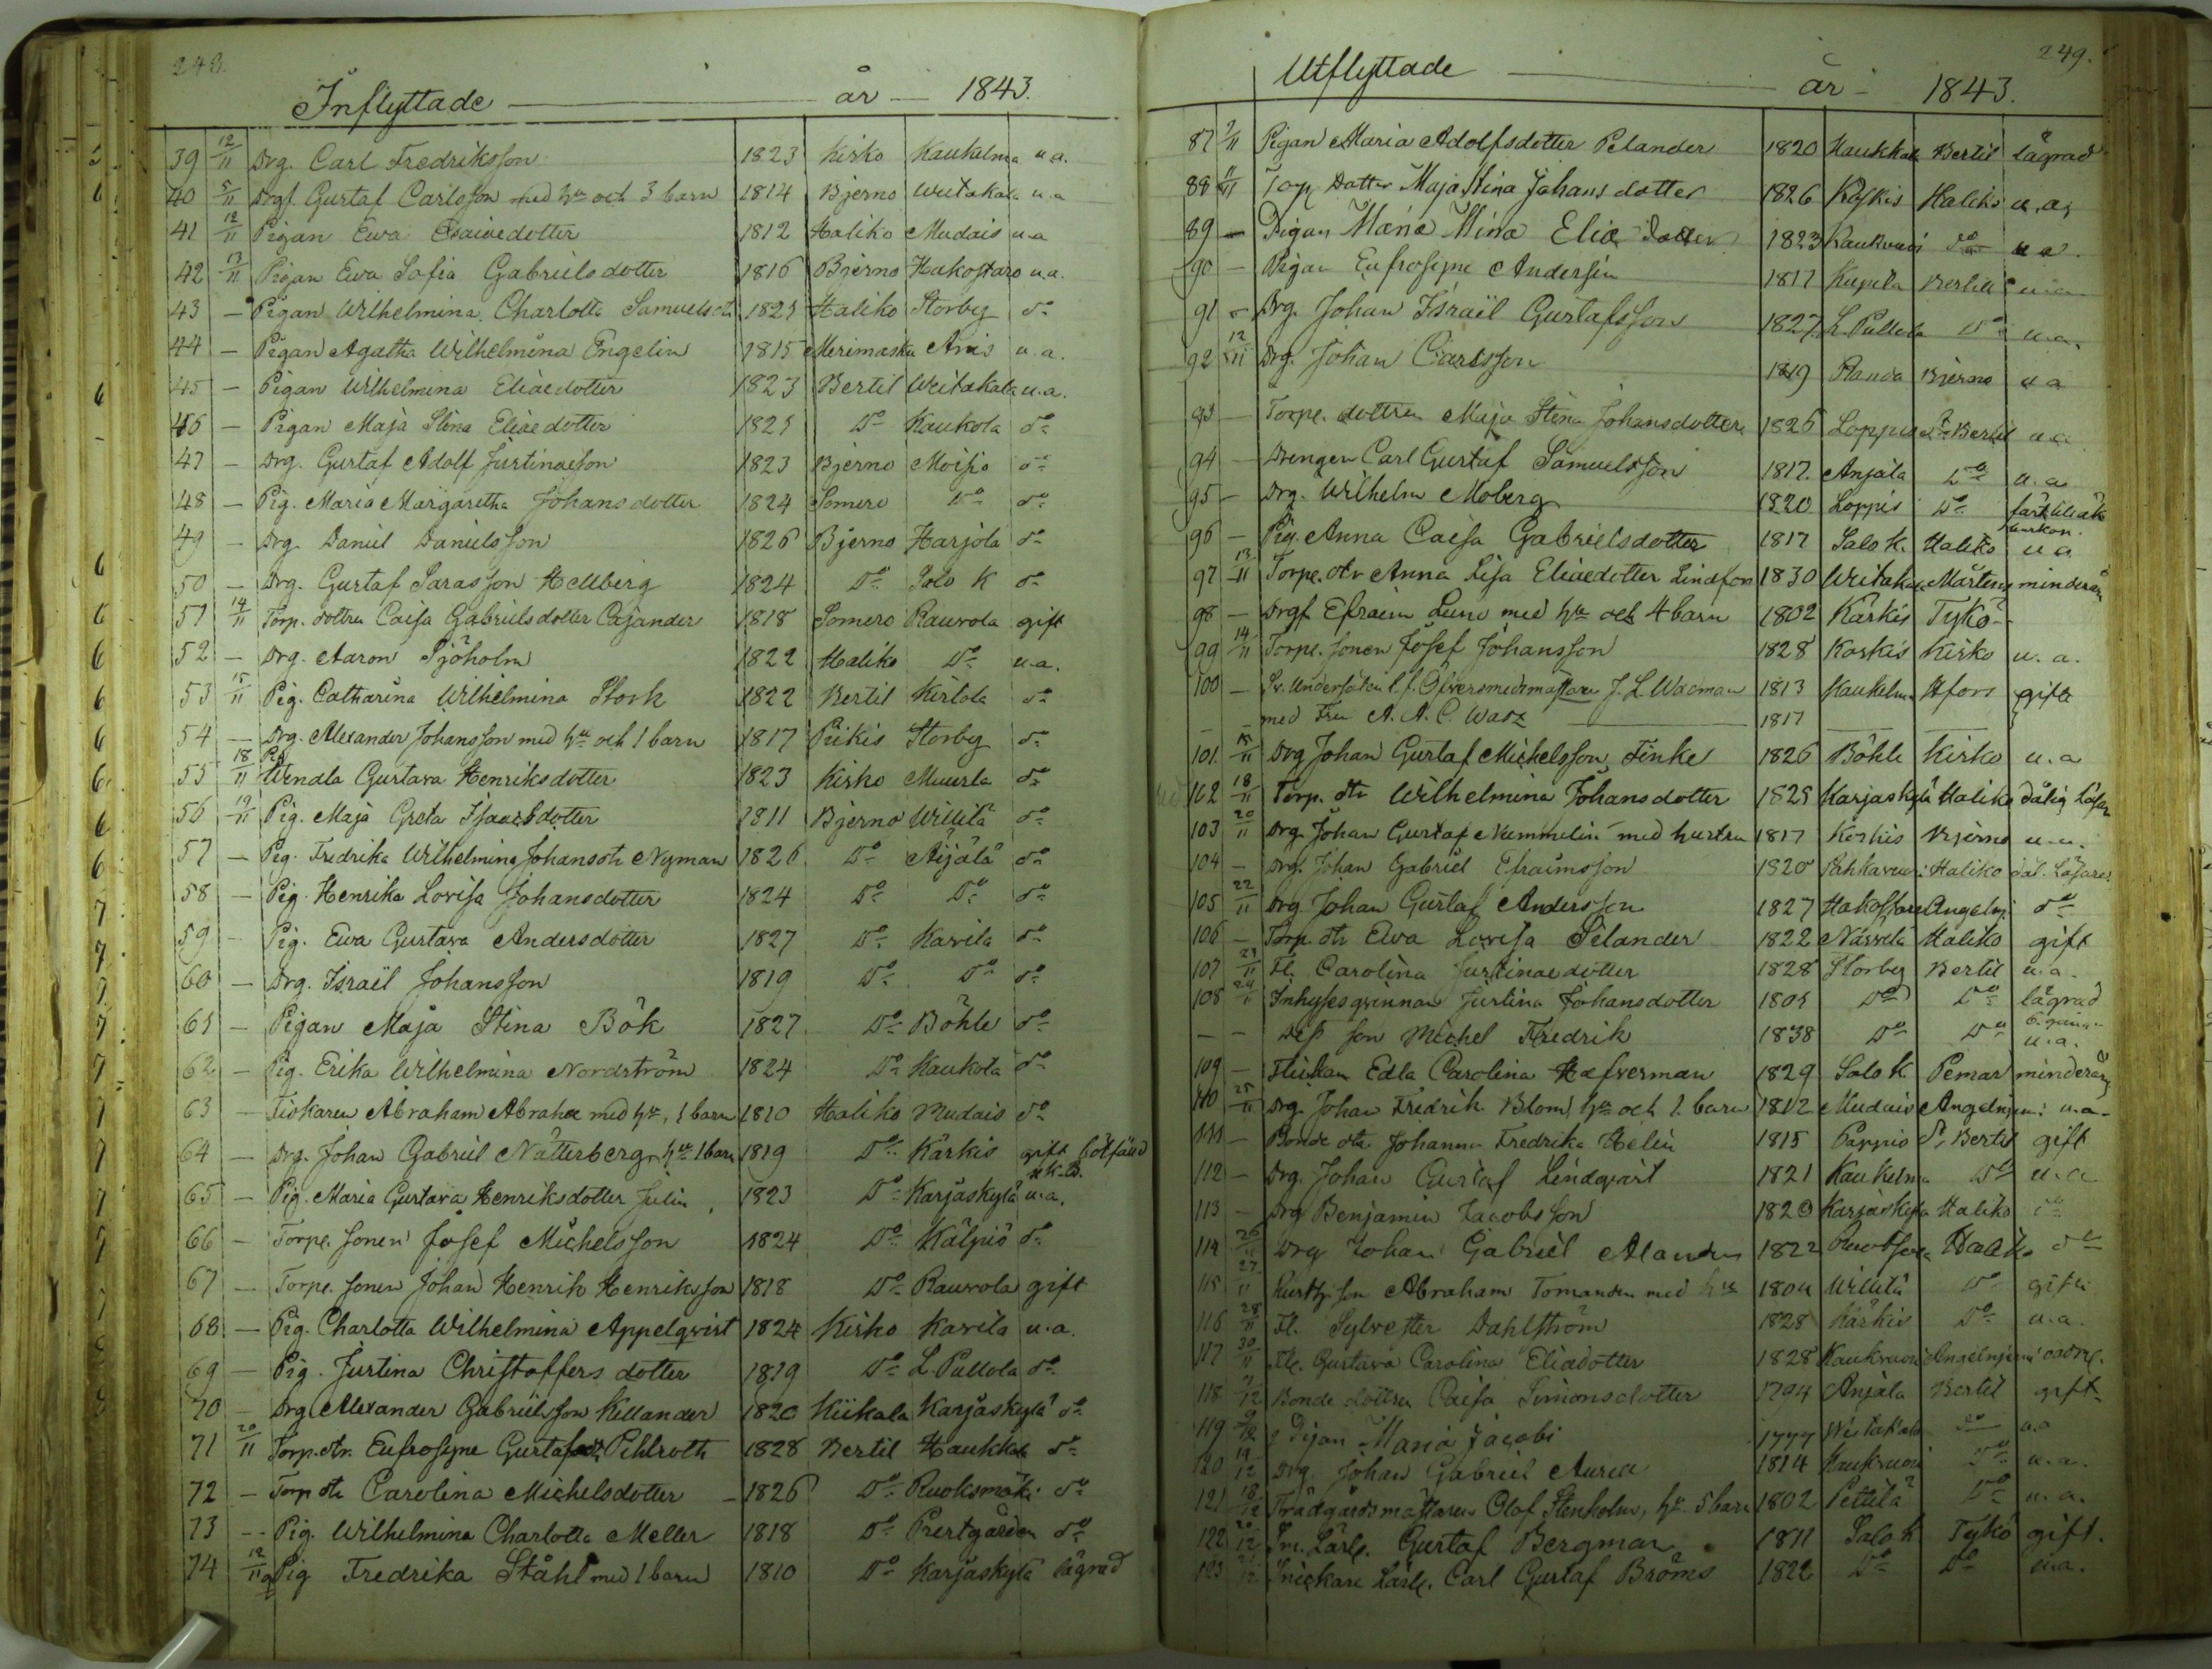 248.
Inflyttade — år — 1843.
39 12/11 Drg. Carl Fredriksson 1823 Kisko Kaukelma u.a.
40 5/11 Drgf Gustaf Carlsson med hu och 3 barn 1814 Bjerno Weitakala u.a
41 12/11 Pigan Ewa Esaiædotter 1812 Haliko Mudais u.a
42 13/11 Pigan Ewa Sofia Gabrielsdotter 1816 Bjerno Hakostaro u.a.
43 — Pigan Wilhelmina Charlotta Samuelsdt 1825 Haliko Storby do
44 — Pigan Agatha Wilhelmina Engelin 1815 Merimasku Anis u.a.
45 — Pigan Wilhelmina Eliædotter 1823 Bertil Weitakala u.a.
46 — Pigan Maja Stina Eliædotter 1825 Do Kaukola do
47 — Drg. Gustaf Adolf Justinæson 1823 Bjerno Moisio do
48 — Pig. Maria Margaretha Johansdotter 1824 Somero Do do
49 — Drg Daniel Danielsson 1826 Bjerno Harjola do
50 — Drg. Gustaf Sarasson Hellberg 1824 Do Salo K do
51 14/11 Torp. dottren Caisa Gabrielsdotter Cajander 1818 Somero Rauvola gift
52 — Drg. Aaron Sjöholm 1822 Haliko Do u.a.
53 15/11 Pig. Catharina Wilhelmina Stork 1822 Bertil Kirlola do
54 — Drg. Alexander Johansson med hu och 1 barn 1817 Pikis Storby do
55 18/11 Pig Wendla Gustava Henriksdotter 1823 Kisko Muurla do
56 19/11 Pig. Maja Greta Isaacsdotter 1811 Bjerno Willilä do
57 — Pig. Fredrika Wilhelmina Johansdtr Nyman 1826 Do Äijälä do
58 — Pig. Henrika Lovisa Johansdotter 1824 Do Do do
59 — Pig. Ewa Gustava Andersdotter 1827 Do Kavila do
60 — Drg. Israil Johansson 1819 Do Do do
61 — Pigan Maja Stina Bök 1827 Do Böhle do
62 — Pig. Erika Wilhelmina Nordström 1824 Do Kaukola do
63 — Fiskaren Abraham Abrahæ med hu, 1 barn 1810 Haliko Mudais do
64 — Drg. Johan Gabriel Nätterberg hu 1 barn 1819 Do Kärkis gift
65 — Pig. Maria Gustava Henriksdotter Julin 1823 Do Karjaskylä u.a.
66 — Torpe. sonen Josef Michelsson 1824 Do Kälpiö do
67 — Torpe. sonen Johan Henrik Henriksson 1818 Do Rauvola gift
68 — Pig. Charlotta Wilhelmina Appelqvist 1824 Kisko Kavila u.a.
69 — Pig. Justina Christoffersdotter 1819 Do L. Pullola do
70 — Drg. Alexander Gabrielsson Kellander 1820 Kiikala Karjaskylä do
71 20/11 Torp. dtr. Eufrosyne Gustafsdt Pihlroth 1828 Bertil Haukkala do
72 — Torp dtr Carolina Michelsdotter 1826 Do Ruoksmäki do
73 — Pig. Wilhelmina Charlotta Meller 1818 Do Prestgården do
74 12/11 Pig Fredrika Ståhl med 1 barn 1810 Do Karjaskylä lägrad
249.
Utflyttade — år — 1843.
87 7/11 Pigan Maria Adolfsdotter Pelander 1820 Haukkala Bertil lägrad
88 11/11 Torp Dotter Maja Stina Johansdotter 1826 Haliko u.a.
89 — Pigan Maria Mina Eliædotter 1823 Kaukvuori do u.a.
90 — Pigan Eufrosyne Andersin 1817 Bertil u.a
91 — Drg. Johan Israil Gustafsson 1827 L. Pullola Do u.a.
92 12/11 Drg. Johan Carlsson 1819 Randa Bjerno u.a
93 — Torpe. dottren Maja Stina Johansdotter 1826 Loppis St Bertil u.a
94 — Drengen Carl Gustaf Samuelsson 1817. Anjala Do u.a
95 — Drg. Wilhelm Moberg 1820 Loppis Do
96 — Pig. Anna Caisa Gabrielsdotter 1817 Salo K. Haliko u.a
97 13/11 Torpe. dtr Anna Lisa Eliædotter Lindfors 1830 Weitakala Mårtens minderåri
98 — Drgf Efraim Lund med hu och 4 barn 1802 Kärkis Tykö
99 14/11 Torpe. sonen Josef Johansson 1828 Kärkis Kisko u.a.
100 — J. L. Wadman 1813 Kaukelma Hfors gifte
— — med Fru A. A. C. 1817
101 15/11 Drg Johan Gustaf Michelsson Finke 1826 Böhle Kisko u.a
102 18/11 Torp. dtr Wilhelmina Johansdotter 1825 Karjaskylä Haliko dålig läsar
103 20/11 Drg. Johan Gustaf Nummelin med hustru 1817 Kärkis Bjerno u.a.
104 — Drg. Johan Gabriel Efraimsson 1820 Haliko dål. läsare
105 22/11 Drg Johan Gustaf Andersson 1827 Hakostaro Angeln do
106 — Torp. dtr Ewa Lovisa Selander 1822 Haliko gift
107 23/11 Fl. Carolina Justinædotter 1828 Storby Bertil u.a.
108 24/11 Inhysesqvinnan Justina Johansdotter 1805 Do Do lägrad
— — Dess son Michel Fredrik 1838 Do Do u.a.
109 — Flickan Edla Carolina Hafverman 1829 Salo K. Pemar minderårig
110 25/11 Drg. Johan Fredrik Blom, hu och 1 barn 1812 Mudais Angelniemi u.a.
111 — Bonde dtr Johanna Fredrika Helin 1815 Pappis St Bertil gift
112 — Drg. Johan Gustaf Lindqvist 1821 Kaukelma Do u.a
113 — Drg Benjamin Jacobsson 1820 Karjaskylä Haliko do
114 26/11 Drg Johan Gabriel Alander 1822 Haliko do
115 27/11 Abraham Tomander med hu 1804 Willilä Do gifte
116 28/11 Fl. Sylvester Dahlström 1828 Kärkis Do u.a.
117 30/11 Fl. Gustava Carolina Eliædotter 1828 Kaukvuori Angelniemi
118 12 Bonde dottren Caisa Simonsdotter 1794 Anjala Bertil gift
119 Pigan Maria Jacobi 1777 Weitakala do u.a
120 19/12 Drg. Johan Gabriel 1814 Kaukvuori Do u.a.
121 18/12 Trädgårdsmästaren Olof Stenholm, hu 5 barn 1802 Pettilä Do u.a.
122 20/12 Sn. Lärl. Gustaf Bergman 1811 Salo K Tykö gift.
123 Snickare Lärl. Carl Gustaf Broms 1822 Do Do u.a.